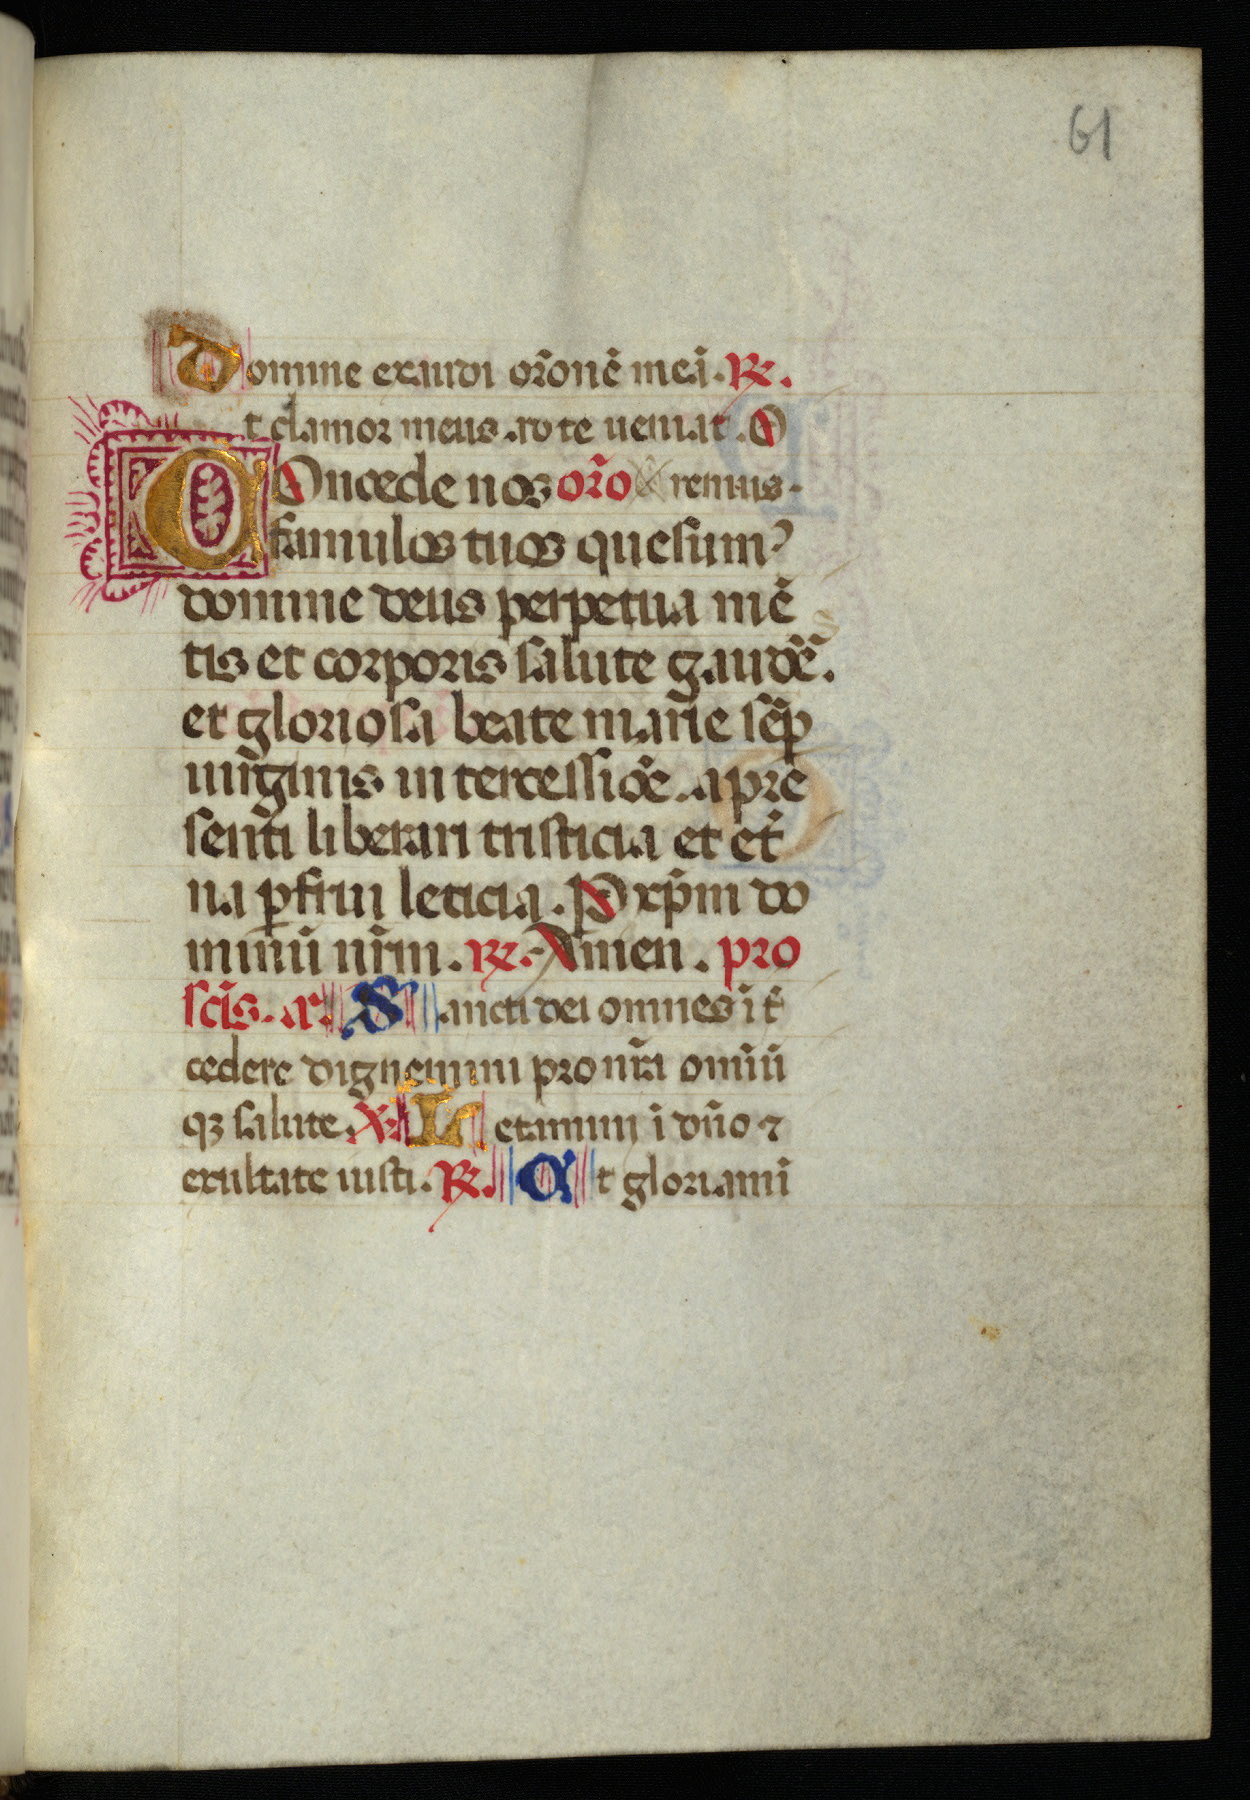 61
Domine exaudi or̄onē meā. R.
t clamor meus ad te ueniat. O
COncede nos or̄o remus.
famulos tuos quesum᷒
domine deus perpetua mē
tis et corporis salute gaudē̄.
et gloriosa beate marie sēp
uirginis intercessiōe. a pre
senti liberari tristicia et et̄
na ꝑfrui leticia. P xp̄m do
minū nr̄m. R. Amen. pro
sc̄is. a. Sancti dei omnes īt̄
cedere dignemini pro nr̄a omiū
qꝫ salute. V. Letamini ī dn̄o ⁊
exultate iusti. R. Et gloriami